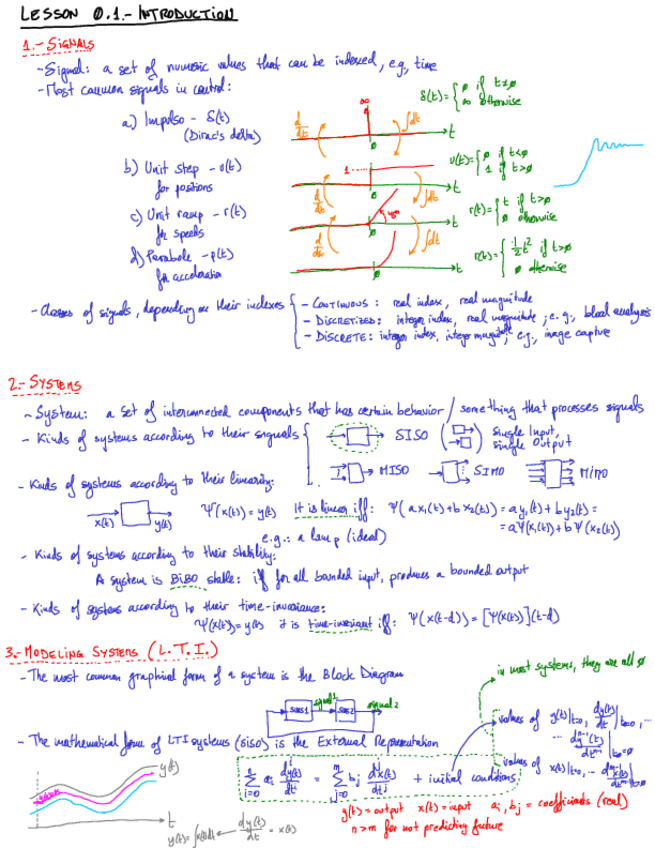 LESSON 0.1.- INTRODUCTION
1.- SIGNALS
- Signal: a set of numeric values that can be indexed, e.g., time
- Most common signals in control:
a) Impulso - δ(t)
(Dirac's delta)
δ(t) = { ∅ if t≠∅
∞ otherwise
∞
d/dt
∫dt
t
∅
b) Unit step - u(t)
for positions
u(t) = { ∅ if t<∅
1 if t>∅
1
d/dt
∫dt
t
∅
c) Unit ramp - r(t)
for speeds
r(t) = { t if t>∅
∅ otherwise
45°
d/dt
∫dt
t
∅
d) Parabole - p(t)
for acceleration
r(t) = { 1/2 t² if t>∅
∅ otherwise
t
∅
- Classes of signals, depending on their indexes { - CONTINUOUS: real index, real magnitude
- DISCRETIZED: integer index, real magnitude; e.g., blood analysis
- DISCRETE: integer index, integer magnitude; e.g., image capture
2.- SYSTEMS
- System: a set of interconnected components that has certain behavior / something that processes signals
- Kinds of systems according to their signals { SISO ( ) single Input,
single Output
MISO SIMO MIMO
- Kinds of systems according to their linearity:
x(t) y(t) Ψ(x(t)) = y(t) It is linear iff: Ψ(a x₁(t) + b x₂(t)) = a y₁(t) + b y₂(t) =
= aΨ(x₁(t)) + bΨ(x₂(t))
e.g.: a lamp (ideal)
- Kinds of systems according to their stability:
A system is BIBO stable: iff for all bounded input, produces a bounded output
- Kinds of systems according to their time-invariance:
Ψ(x(t)) = y(t) it is time-invariant iff: Ψ(x(t-d)) = [Ψ(x(t))](t-d)
3.- MODELING SYSTEMS (L.T.I.)
- The most common graphical form of a system is the Block Diagram
in most systems, they are all ∅
sys1 signal1 sys2 signal 2
- The mathematical form of LTI systems (SISO) is the External Representation
values of y(t)|t=0, dy(t)/dt|t=0, ...
values of x(t)|t=0, ...
Σ i=0 aᵢ dⁱy(t)/dtⁱ = Σ j=0 m bⱼ dʲx(t)/dtʲ + initial conditions
y(t)
t
y(t) = ∫x(t)dt ← dy(t)/dt = x(t)
y(t) = output x(t) = input aᵢ, bⱼ = coefficients (real)
n>m for not predicting future